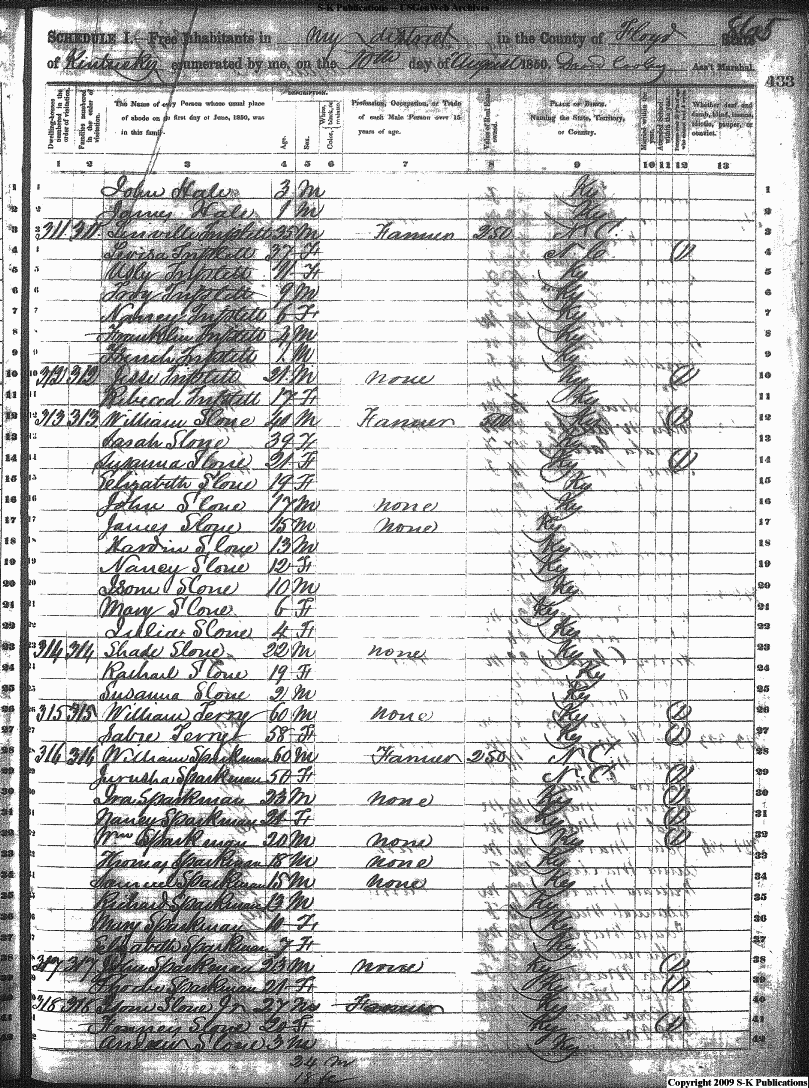 S-K Publications -- USGenWeb Archives
SCHEDULE I.—Free Inhabitants in my district in the County of Floyd State
of Kentucky enumerated by me, on the 10th day of August 1850. David Cooley Ass't Marshal.
433
Dwelling-houses numbered in the order of visitation.
Families numbered in the order of visitation.
The Name of every Person whose usual place of abode on the first day of June, 1850, was in this family.
DESCRIPTION.
Age.
Sex.
Color,
Profession, Occupation, or Trade of each Male Person over 15 years of age.
Value of Real Estate owned.
PLACE OF BIRTH. Naming the State, Territory, or Country.
Married within the year.
Whether deaf and dumb, blind, insane, idiotic, pauper, or convict.
1 2 3 4 5 6 7 8 9 10 11 12 13
1 John Hale 3 M Ky 1
2 James Hale 1 M Ky 2
3 311 311 Linville Tripplett 35 M Farmer 250 N C 3
4 Levisa Tripplett 37 F N C 1 4
5 Tripplett F Ky 5
6 Tripplett 9 M Ky 6
7 Nancy Tripplett 6 F Ky 7
8 Franklin Tripplett M Ky 8
9 Tripplett 1 M Ky 9
10 312 312 Jesse Tripplett 21 M none Ky 1 10
11 Rebecca Tripplett 17 F Ky 11
12 313 313 William Slone 40 M Farmer 500 Ky 1 12
13 Sarah Slone 39 F Ky 13
14 Susanna Slone 21 F Ky 1 14
15 Elizabeth Slone 19 F Ky 15
16 John Slone 17 M none Ky 16
17 James Slone 15 M none Ky 17
18 Hardin Slone 13 M Ky 18
19 Nancy Slone 12 F Ky 19
20 Isom Slone 10 M Ky 20
21 Mary Slone 6 F Ky 21
22 Slone 4 F Ky 22
23 314 314 Shade Slone 22 M none Ky 23
24 Rachael Slone 19 F Ky 24
25 Susanna Slone 2 M Ky 25
26 315 315 William Terry 60 M none Ky 1 26
27 Sabre Terry 58 F Ky 1 27
28 316 316 William Sparkman 60 M Farmer 250 N C 28
29 Jerusha Sparkman 50 F N C 1 29
30 Ira Sparkman 23 M none Ky 1 30
31 Nancy Sparkman 21 F Ky 1 31
32 Wm Sparkman 20 M none Ky 1 32
33 Thomas Sparkman 18 M none Ky 33
34 Samuel Sparkman 15 M none Ky 34
35 Richard Sparkman 13 M Ky 35
36 Mary Sparkman 10 F Ky 36
37 Elizabeth Sparkman 7 F Ky 37
38 317 317 John Sparkman 23 M none Ky 1 38
39 Phoebe Sparkman 21 F Ky 1 39
40 318 318 Isom Slone Jr 27 M Farmer Ky 40
41 Slone 20 F Ky 1 41
42 Andrew Slone 3 M Ky 42
24 M
18 F
Copyright 2009 S-K Publications